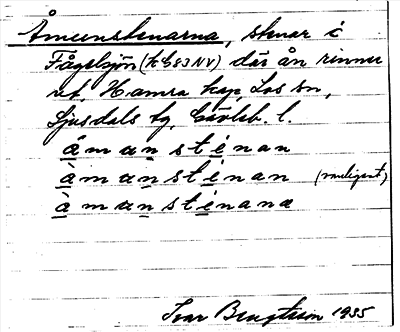 Åmunstenarna, stenar i
Fågelsjön (k C83NV) där ån rinner
ut Hamra kap Los sn,
Ljusdals tg, Gävleb. l.
åmunsténan
åmunsténan (vanligast)
åmunsténana
Ivar Bengtsson 1935